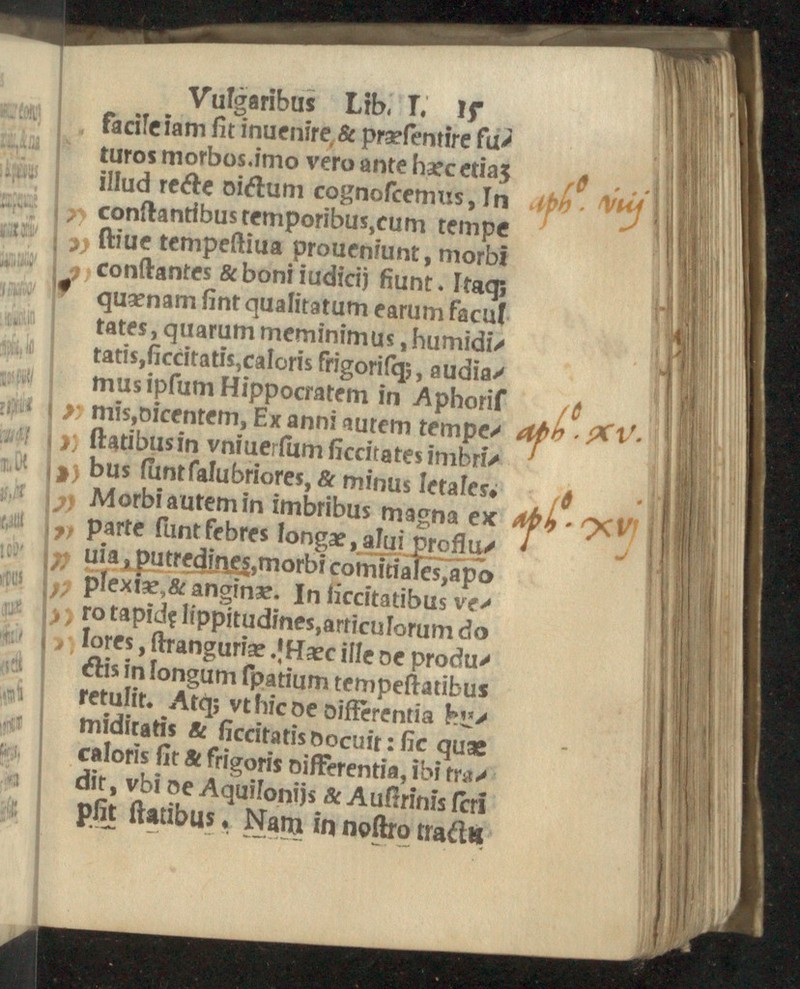 Vulgaribus Lib. I. 15
facile iam fit inuenire, & præsentire fu⸗
turos morbos. imo vero ante hæc etiaʒ
illud recte dictum cognoscemus, In
conſtantibus temporibus, cum tempe
ſtiue tempeſtiua proueniunt, morbi
conſtantes & boni iudicij fiunt. Itaqꝫ
quænam ſint qualitatum earum facul
tates, quarum meminimus, humidi⸗
tatis, ſiccitatis, caloris frigoriſqꝫ, audia⸗
mus ipſum Hippocratem in Aphoriſ
mis, dicentem, Ex anni autem tempe⸗
ſtatibus in vniuerſum ſiccitates imbri⸗
bus ſunt ſalubriores, & minus letales.
Morbi autem in imbribus magna ex
parte ſunt febres longæ, alui proflu⸗
uia, putredines, morbi comitiales, apo
plexiæ, & anginæ. In ſiccitatibus ve⸗
ro tapidę lippitudines, articulorum do
lores, ſtranguriæ. Hæc ille de produ⸗
ctis in longum ſpatium tempeſtatibus
retulit. Atqꝫ vt hic de differentia hu⸗
miditatis & ſiccitatis docuit: ſic quæ
caloris ſit & frigoris differentia, ibi tra⸗
dit, vbi de Aquilonijs & Auſtrinis ſcri
pſit ſtatibus. Nam in noſtro tractu
aph⁰. viij
aph⁰. xv.
aph⁰. xvj